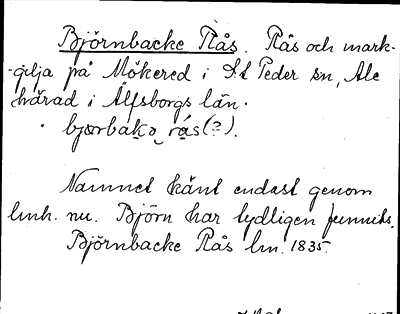 Björnbacke Rås. Rås och mark-
-gilja på Mökered i S:t Peder sn, Ale
härad i Älfsborgs län.
bjœrbakə rås(?).
Namnet känt endast genom
lmh. nu. Björn har tydligen funnits.
Björnbacke Rås lm. 1835.